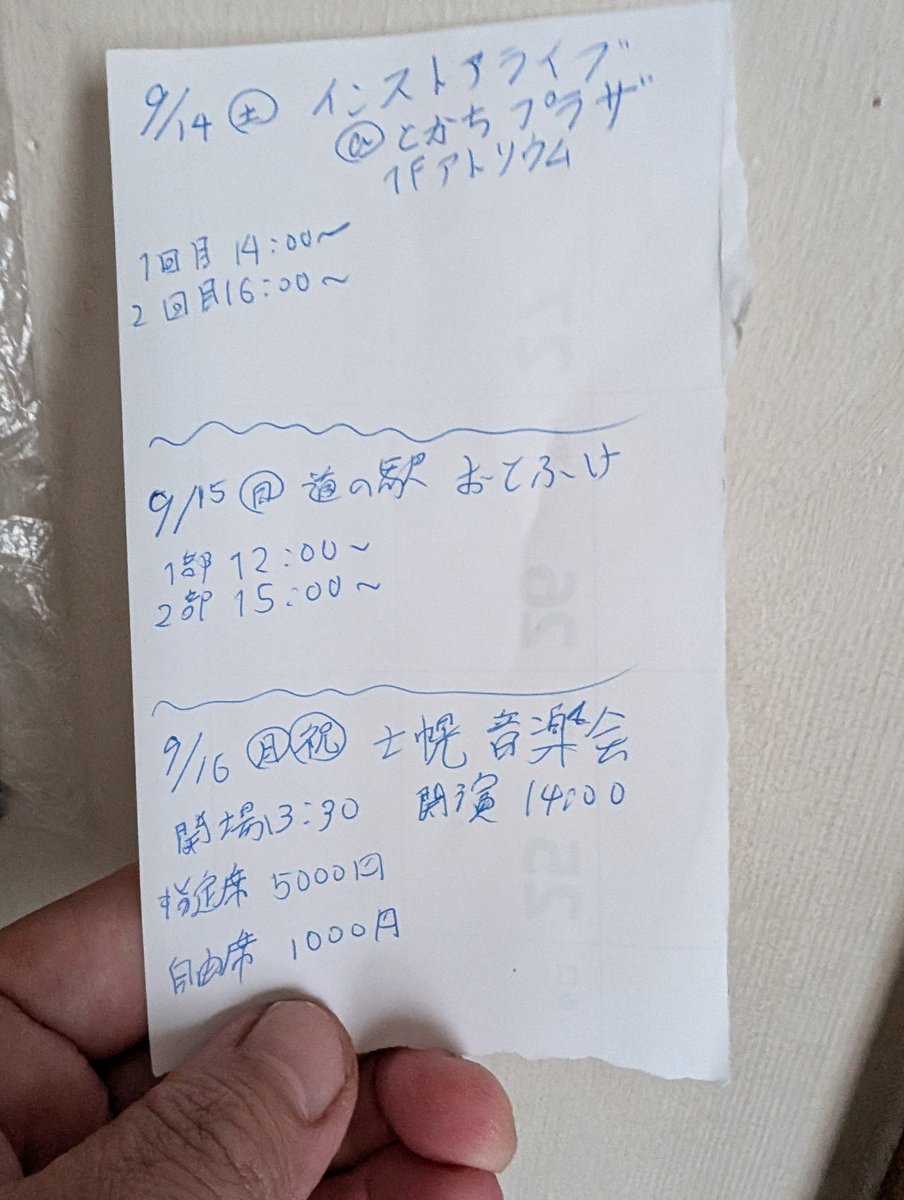 9/14 ㊏ インストアライブ
@とかちプラザ
1Fアトリウム
1回目 14:00〜
2回目 16:00〜
9/15 ㊐ 道の駅 おとふけ
1部 12:00〜
2部 15:00〜
9/16 ㊊㊗ 士幌 音楽会
開場13:30 開演 14:00
指定席 5000円
自由席 1000円
26
25